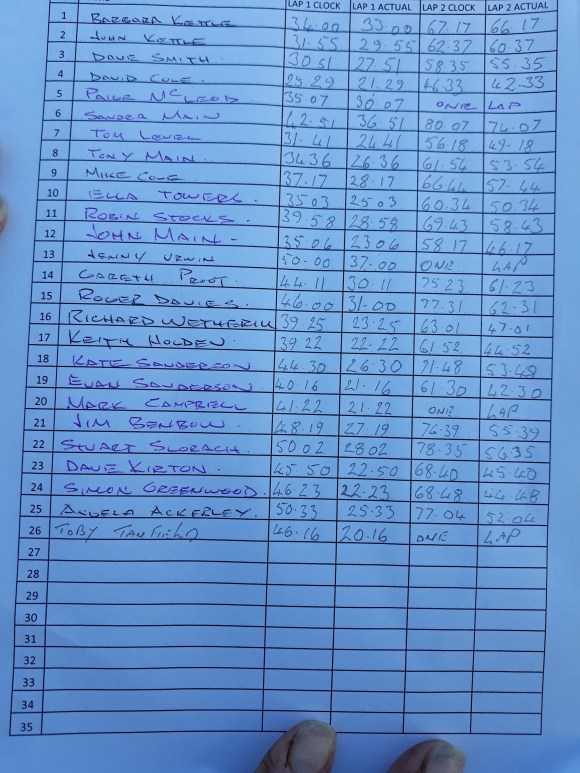 LAP 1 CLOCK LAP 1 ACTUAL LAP 2 CLOCK LAP 2 ACTUAL
1 BARBARA KETTLE 34.00 33.00 67.17 66.17
2 JOHN KETTLE 31.55 29.55 62.37 60.37
3 DAVE SMITH 30 51 27.51 58 35 55.35
4 DAVID COLE 25.29 21.29 46.33 42.33
5 PAIGE MCLEOD 35.07 30.07 ONE LAP
6 SANDRA MAIN 42.51 36.51 80 07 74.07
7 TOM LEVEL 31.41 24 41 56.18 49.18
8 TONY MAIN 34.36 26.36 61.54 53.54
9 MIKE COLE 37.17 28.17 66.44 57.44
10 ELLA TOWERS. 35 03 25 03 60.34 50.34
11 ROBIN STOCKS. 39.58 28.58 69.43 58.43
12 JOHN MAIN - 35.06 23 06 58.17 46.17
13 JENNY URWIN 50.00 37.00 ONE LAP
14 GARETH PROOT. 44.11 30.11 75 23 61.23
15 ROGER DAVIES. 46.00 31.00 77.31 62.31
16 RICHARD WETHERILL 39.25 23.25 63 01 47.01
17 KEITH HOLDEN 39 22 22.22 61.52 44.52
18 KATE SANDERSON 44.30 26.30 71.48 53.48
19 EUAN SANDERSON. 40.16 21.16 61.30 42 30
20 MARK CAMPBELL 41.22 21.22 ONE LAP
21 JIM BENBOW. 48.19 27.19 76.39 55.39
22 STUART SLORACH. 50 02 28 02 78.35 56.35
23 DAVE KIRTON. 45.50 22.50 68.40 45.40
24 SIMON GREENWOOD. 46.23 22.23 68.48 44.48
25 ANGELA ACKERLEY. 50.33 25.33 77.04 52.04
26 TOBY TANFIELD 46.16 20.16 ONE LAP
27
28
29
30
31
32
33
34
35